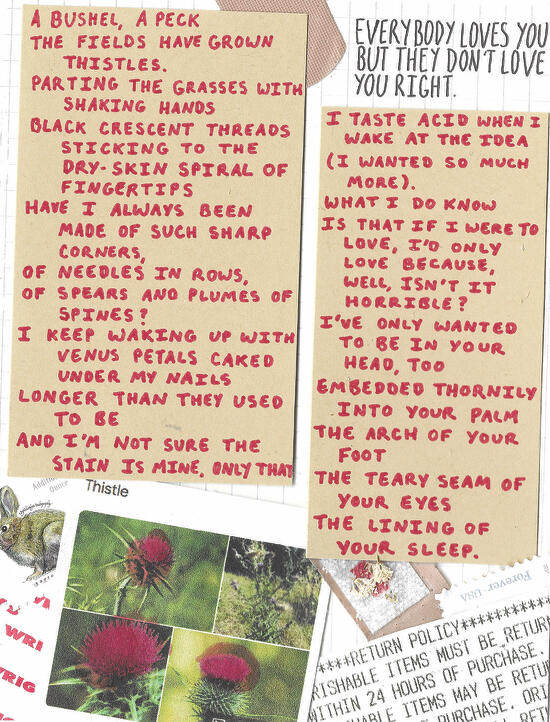 A BUSHEL, A PECK
THE FIELDS HAVE GROWN
THISTLES.
PARTING THE GRASSES WITH
SHAKING HANDS
BLACK CRESCENT THREADS
STICKING TO THE
DRY-SKIN SPIRAL OF
FINGERTIPS
HAVE I ALWAYS BEEN
MADE OF SUCH SHARP
CORNERS,
OF NEEDLES IN ROWS,
OF SPEARS AND PLUMES OF
SPINES?
I KEEP WAKING UP WITH
VENUS PETALS CAKED
UNDER MY NAILS
LONGER THAN THEY USED
TO BE
AND I'M NOT SURE THE
STAIN IS MINE. ONLY THAT
EVERYBODY LOVES YOU
BUT THEY DON'T LOVE
YOU RIGHT.
I TASTE ACID WHEN I
WAKE AT THE IDEA
(I WANTED SO MUCH
MORE).
WHAT I DO KNOW
IS THAT IF I WERE TO
LOVE, I'D ONLY
LOVE BECAUSE,
WELL, ISN'T IT
HORRIBLE?
I'VE ONLY WANTED
TO BE IN YOUR
HEAD, TOO
EMBEDDED THORNILY
INTO YOUR PALM
THE ARCH OF YOUR
FOOT
THE TEARY SEAM OF
YOUR EYES
THE LINING OF
YOUR SLEEP.
Ounce
Thistle
WRI
Forever·USA
****RETURN POLICY***********
RISHABLE ITEMS MUST BE RETUR
ITHIN 24 HOURS OF PURCHASE.
ITEMS MAY BE RETU
PURCHASE. ORI